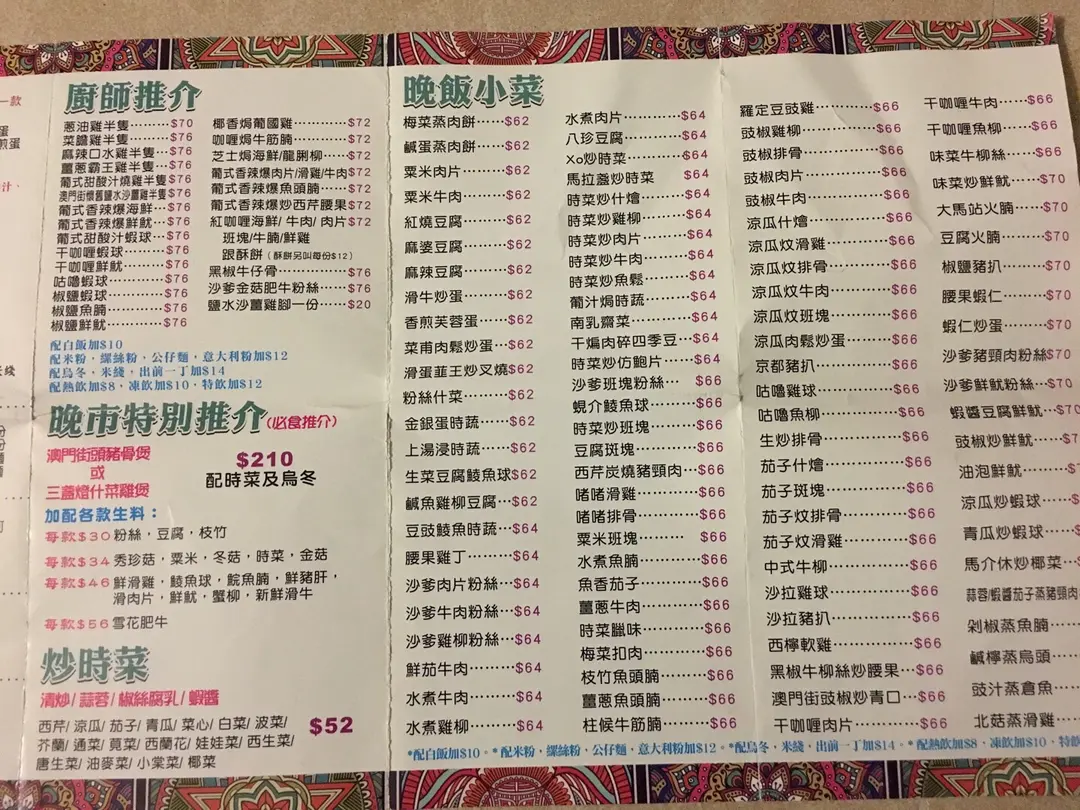 一款
蛋
煎蛋
廚師推介
蔥油雞半隻………$70
菜膽雞半隻………$76
麻辣口水雞半隻…$76
薑蔥霸王雞半隻…$76
葡式甜酸汁燒雞半隻$76
澳門街懷舊鹽水沙薑雞半隻$76
葡式香辣爆海鮮…$76
葡式香辣爆鮮魷…$76
葡式甜酸汁蝦球…$76
干咖喱蝦球………$76
干咖喱鮮魷………$76
咕嚕蝦球…………$76
椒鹽蝦球…………$76
椒鹽魚腩…………$76
椒鹽鮮魷…………$76
椰香焗葡國雞………$72
咖喱焗牛筋腩………$72
芝士焗海鮮/龍脷柳……$72
葡式香辣爆肉片/滑雞/牛肉$72
葡式香辣爆魚頭腩……$72
葡式香辣爆炒西芹腰果$72
紅咖喱海鮮/ 牛肉/ 肉片$72
班塊/牛腩/鮮雞
跟酥餅(酥餅另叫每份$12)
黑椒牛仔骨…………$76
沙爹金菇肥牛粉絲……$76
鹽水沙薑雞腳一份……$20
配白飯加$10
配米粉，縲絲粉，公仔麵，意大利粉加$12
配烏冬，米綫，出前一丁加$14
配熱飲加$8，凍飲加$10，特飲加$12
晚市特別推介(必食推介)
澳門街頭豬骨煲
或
三盞燈什菜雞煲
$210
配時菜及烏冬
加配各款生料：
每款$30粉絲，豆腐，枝竹
每款$34秀珍菇，粟米，冬菇，時菜，金菇
每款$46鮮滑雞，鯪魚球，鯇魚腩，鮮豬肝，
滑肉片，鮮魷，蟹柳，新鮮滑牛
每款$56雪花肥牛
炒時菜
清炒/ 蒜蓉/ 椒絲腐乳/ 蝦醬
西芹/ 涼瓜/ 茄子/ 青瓜/ 菜心/ 白菜/ 波菜/
芥蘭/ 通菜/ 莧菜/ 西蘭花/ 娃娃菜/ 西生菜/
唐生菜/ 油麥菜/ 小棠菜/ 椰菜
$52
晚飯小菜
梅菜蒸肉餅………$62
鹹蛋蒸肉餅………$62
粟米肉片…………$62
粟米牛肉…………$62
紅燒豆腐…………$62
麻婆豆腐…………$62
麻辣豆腐…………$62
滑牛炒蛋…………$62
香煎芙蓉蛋………$62
菜甫肉鬆炒蛋……$62
滑蛋韮王炒叉燒$62
粉絲什菜…………$62
金銀蛋時蔬………$62
上湯浸時蔬………$62
生菜豆腐鯪魚球$62
鹹魚雞柳豆腐……$62
豆豉鯪魚時蔬……$64
腰果雞丁…………$64
沙爹肉片粉絲……$64
沙爹牛肉粉絲……$64
沙爹雞柳粉絲……$64
鮮茄牛肉…………$64
水煮牛肉…………$64
水煮雞柳…………$64
水煮肉片…………$64
八珍豆腐…………$64
XO炒時菜…………$64
馬拉盞炒時菜 $64
時菜炒什燴………$64
時菜炒雞柳………$64
時菜炒肉片………$64
時菜炒牛肉………$64
時菜炒魚鬆………$64
葡汁焗時蔬………$64
南乳齋菜…………$64
干煸肉碎四季豆…$64
時菜炒仿鮑片……$64
沙爹班塊粉絲… $66
蜆介鯪魚球………$66
時菜炒班塊………$66
豆腐斑塊…………$66
西芹炭燒豬頸肉…$66
啫啫滑雞…………$66
啫啫排骨…………$66
粟米班塊……… $66
水煮魚腩…………$66
魚香茄子…………$66
薑蔥牛肉…………$66
時菜臘味…………$66
梅菜扣肉…………$66
枝竹魚頭腩………$66
薑蔥魚頭腩………$66
柱候牛筋腩………$66
羅定豆豉雞………$66
豉椒雞柳…………$66
豉椒排骨…………$66
豉椒肉片…………$66
豉椒牛肉…………$66
涼瓜什燴…………$66
涼瓜炆滑雞………$66
涼瓜炆排骨………$66
涼瓜炆牛肉………$66
涼瓜炆班塊………$66
涼瓜肉鬆炒蛋……$66
京都豬扒…………$66
咕嚕雞球…………$66
咕嚕魚柳…………$66
生炒排骨…………$66
茄子什燴…………$66
茄子斑塊…………$66
茄子炆排骨………$66
茄子炆滑雞………$66
中式牛柳…………$66
沙拉雞球…………$66
沙拉豬扒…………$66
西檸軟雞…………$66
黑椒牛柳絲炒腰果…$66
澳門街豉椒炒青口…$66
干咖喱肉片………$66
干咖喱牛肉……$66
干咖喱魚柳……$66
味菜牛柳絲……$66
味菜炒鮮魷……$70
大馬站火腩……$70
豆腐火腩………$70
椒鹽豬扒………$70
腰果蝦仁………$70
蝦仁炒蛋………$70
沙爹豬頸肉粉絲$70
沙爹鮮魷粉絲…$70
蝦醬豆腐鮮魷…$70
豉椒炒鮮魷……$7
油泡鮮魷………$
涼瓜炒蝦球……$
青瓜炒蝦球……
馬介休炒椰菜…
蒜蓉/蝦醬茄子蒸豬頸肉
剁椒蒸魚腩……
鹹檸蒸烏頭……
豉汁蒸倉魚……
北菇蒸滑雞……
*配白飯加$10。*配米粉，縲絲粉，公仔麵，意大利粉加$12。*配烏冬，米綫，出前一丁加$14。*配熱飲加$8，凍飲加$10，特飲